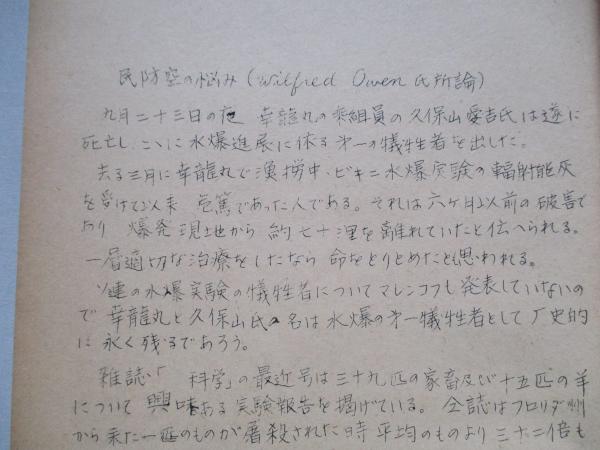 民防空の悩み (Wilfred Owen 氏所論)
九月二十三日の夜 幸龍丸の乗組員の久保山愛吉氏は遂に
死亡し、こゝに水爆進展に依る第一の犠牲者を出した。
去る三月に幸龍丸で漁撈中、ビキニ水爆実験の輻射能灰
を受けて以来 危篤であった人である。それは六ヶ月以前の破害で
あり 爆発現地から 約七十浬を離れていたと伝へられる。
一層適切な治療をしたなら 命をとりとめたと思われる。
ソ連の水爆実験の犠牲者についてマレンコフも発表していないの
で 幸龍丸と久保山氏の名は水爆の第一犠牲者として歴史的
に永く残るであろう。
雑誌「科学」の最近号は三十九匹の家畜及び十五匹の羊
について興味ある実験報告を掲げている。仝誌はフロリダ州
から来た一匹のものが屠殺された時平均のものより三十二倍も